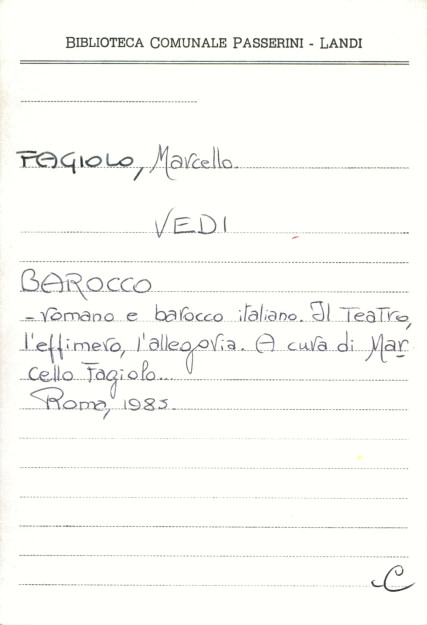 BIBLIOTECA COMUNALE PASSERINI - LANDI
FAGIOLO, Marcello.
VEDI
BAROCCO
- romano e barocco italiano. Il Teatro,
l'effimero, l'allegoria. A cura di Mar-
cello Fagiolo...
Roma, 1985.
C